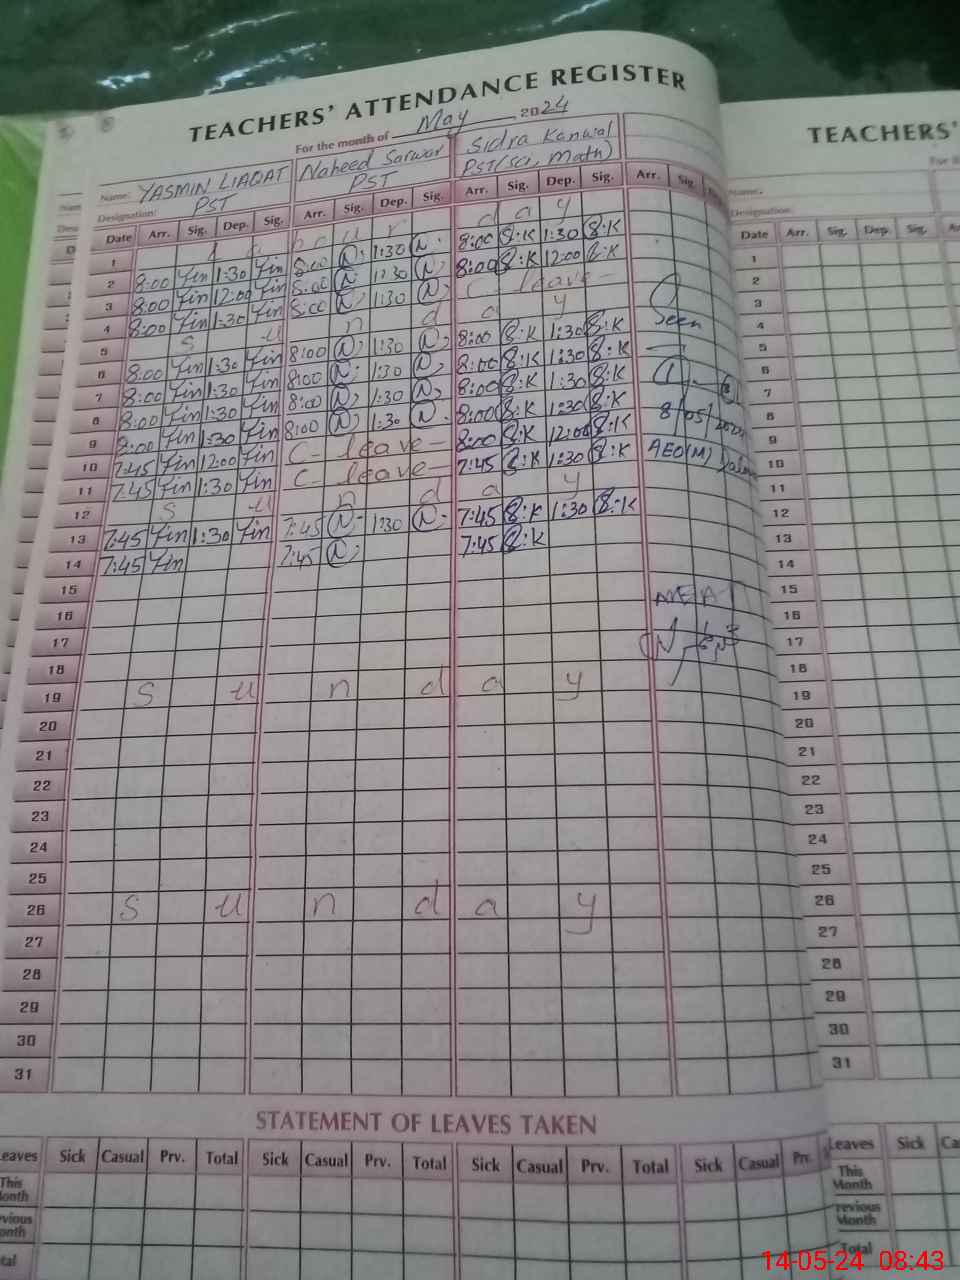 TEACHERS' ATTENDANCE REGISTER
For the month of May 2024
Name: YASMIN LIAQAT Naheed Sarwar Sidra Kanwal
Designation: PST PST PST(sci, math)
Date Arr. Sig. Dep. Sig. Arr. Sig. Dep. Sig. Arr. Sig. Dep. Sig. Arr. Sig.
1 l a b o u r d a y
2 8:00 Yin 1:30 Yin 8:00 N 1:30 N 8:00 S:K 1:30 S:K
3 8:00 Yin 12:00 Yin 8:00 N 12:30 N 8:00 S:K 12:00 S:K
4 8:00 Yin 1:30 Yin 8:00 N 1:30 N C- leave-
5 s u n d a y
6 8:00 Yin 1:30 Yin 8:00 N 1:30 N 8:00 S:K 1:30 S:K Seen
7 8:00 Yin 1:30 Yin 8:00 N 1:30 N 8:00 S:K 1:30 S:K
8 8:00 Yin 1:30 Yin 8:00 N 1:30 N 8:00 S:K 1:30 S:K
9 8:00 Yin 1:30 Yin 8:00 N 1:30 N 8:00 S:K 1:30 S:K 8/05/2024
10 7:45 Yin 12:00 Yin C- leave- 8:00 S:K 12:00 S:K AEO(M)
11 7:45 Yin 1:30 Yin C- leave- 7:45 S:K 1:30 S:K
12 s u n d a y
13 7:45 Yin 1:30 Yin 7:45 N 1:30 N 7:45 S:K 1:30 S:K
14 7:45 Yin 7:45 N 7:45 S:K
15
16
17
18
19 S u n d a y
20
21
22
23
24
25
26 S u n d a y
27
28
29
30
31
STATEMENT OF LEAVES TAKEN
Leaves Sick Casual Prv. Total Sick Casual Prv. Total Sick Casual Prv. Total Sick Casual Prv.
This Month
Previous Month
Total
TEACHERS'
Name:
Designation:
Date Arr. Sig. Dep. Sig.
1
2
3
4
5
6
7
8
9
10
11
12
13
14
15
16
17
18
19
20
21
22
23
24
25
26
27
28
29
30
31
Leaves Sick
This Month
Previous Month
Total
14-05-24 08:43